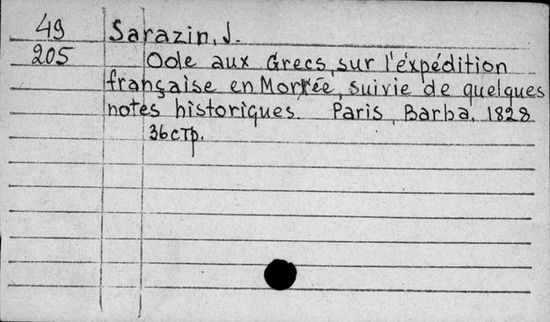 49 Sarazin, J.
205 Oole aux Grecs, sur l'éxpédition
française en Morrée, suivie de quelques
notes historiques. Paris, Barba, 1828
36стр.